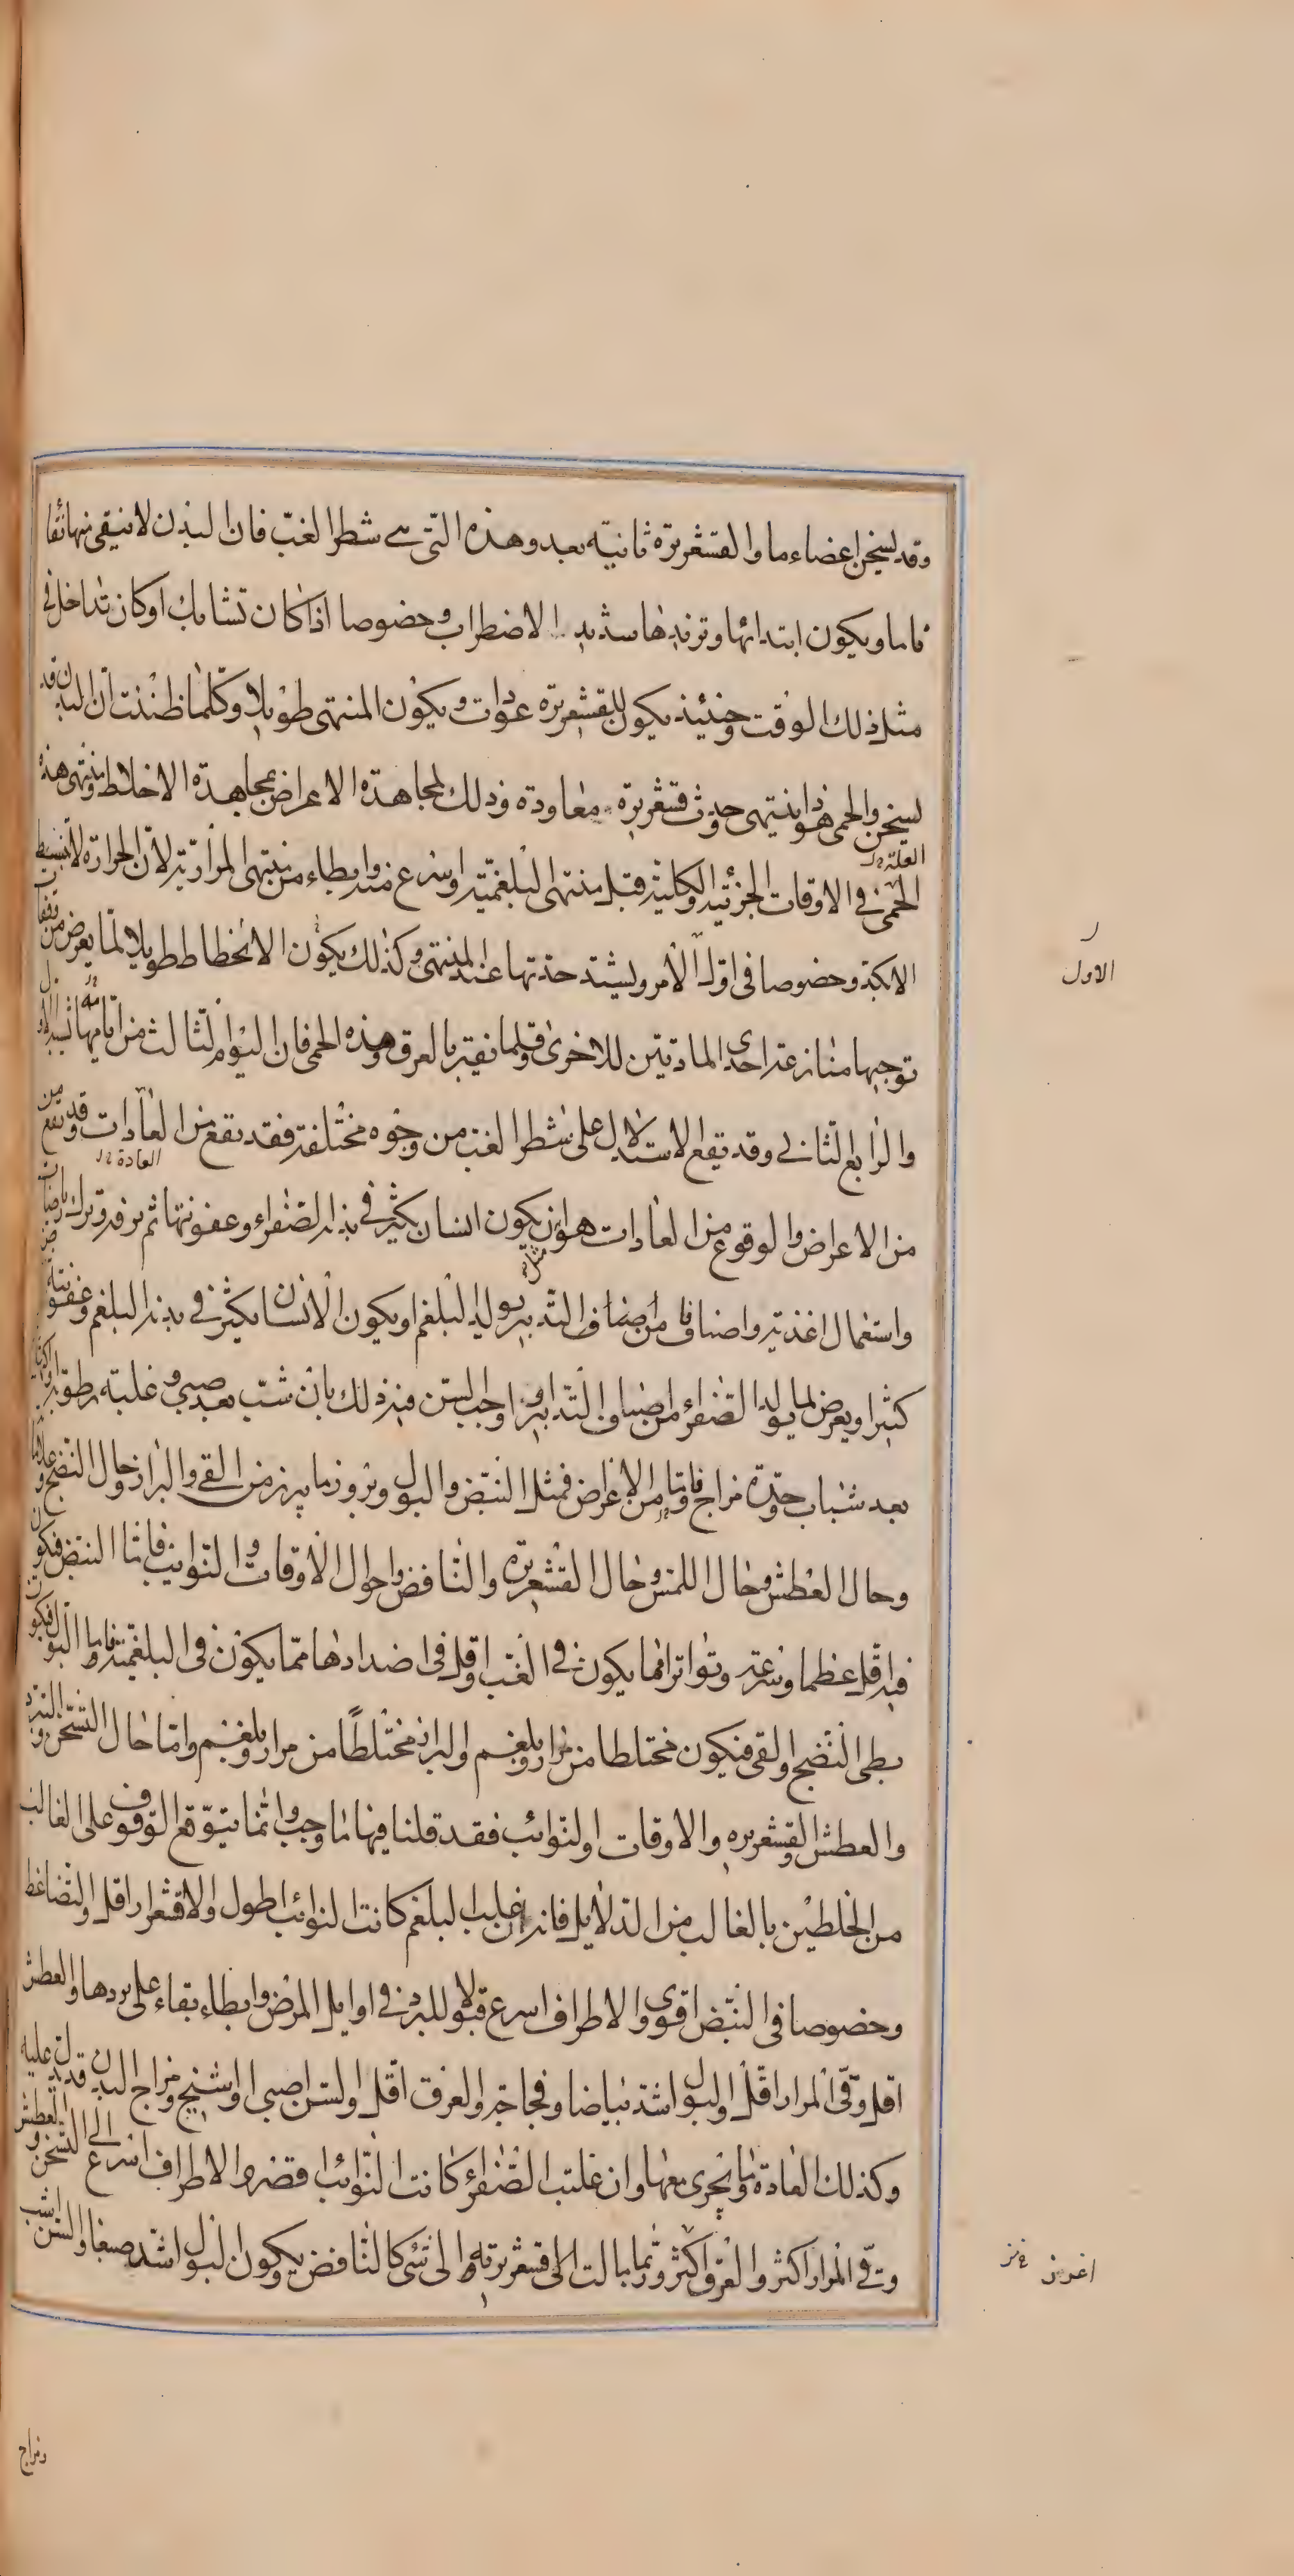 وقد يسخن اعضاء ما والقشعريرة ثانية بعد وهذه التى هى شطر الغب فان البدن لا ينقى منها نقا
تاما ويكون ابتدائها وتزيدها شديد الاضطراب وخصوصا اذا كان تشابك او كان تداخل فى
مثل ذلك الوقت وحينئذ يكون للقشعريرة عودات ويكون المنتهى طويلا وكلما ظننت ان البدن قد
يسخن والحمى هوذا ينتهى حدوث قشعريرة معاودة وذلك لمجاهدة الاعراض بمجاهدة الاخلاط وينتهى هذه
العلة
الحمى فى الاوقات الجزئية والكلية قبل منتهى البلغمية واسرع منه وابطاء من منتهى المرارية لان الحرارة لا تنبسط
الاكبد وخصوصا فى اول الامر ويشتد حدتها عند المنتهى وكذلك يكون الانحطاط طويلا لما يعرض من
توجبها منازعة احدى المادتين للاخرى وقلما نقيه بالعرق وهذه الحمى فان اليوم الثالث من ايامها يشبه الاول
والرابع الثانى وقد يقع الاستدلال على شطر الغب من وجوه مختلفة فقد يقع من العادات وقد يقع من
العادة
من الاعراض والوقوع من العادات هو ان يكون انسان يكثر فى بدنه الصفراء وعفونتها ثم ترفه وترك
مثل
واستعمال اغذية واصنافا من اصناف التدبير يولد البلغم او يكون الانسان يكثر فى بدنه البلغم وعفونته
كثيرا ويعرض لما يولد الصفراء من اصناف التدابير واوجب السن فيه ذلك بان شب بعد صبى وغلبة رطوبة
بعد شباب وحدة مزاج واما من الاعراض فمثل النبض والبول وبروز ما يبرز من القى والبراز وحال النضج
وحال العطش وحال اللمس وحال القشعريرة والنافض واحوال الاوقات والنوايب فاما النبض فيكون
فيه اقل عظما وسرعة وتواترا مما يكون فى الغب واقل فى اضدادها مما يكون فى البلغمية واما البول فيكون
بطى النضج والقى فيكون مختلطا من مرار وبلغم والبراز مختلطا من مرار وبلغم واما حال التسخن والتبرد
والعطش والقشعريره والاوقات والنوائب فقد قلنا فيها ما وجب وانما يتوقع الوقوف على الغالب
من الخلطين بالغالب من الدلايل فانه ان غلب البلغم كانت النوائب اطول والاقشعرار اقل والتضاغط
وخصوصا فى النبض اقوى والاطراف اسرع قبولا للبرد فى اوايل المرض وابطاء بقاء على بردها والعطش
اقل وقى المرار اقل والبول اشد بياضا وفجاجة والعرق اقل والسن اصبى او شيخ ومزاج البدن قد يدل عليه
وكذلك العادة وما يجرى معها وان غلبت الصفراء كانت النوائب اقصر والاطراف اسرع الى التسخن والعطش
وقى المرار اكثر والعرق اكثر وربما بالت الى قشعريرة والى شئ كالنافض ويكون البول اشد صبغا والسن اشب
الاول
ومزاج